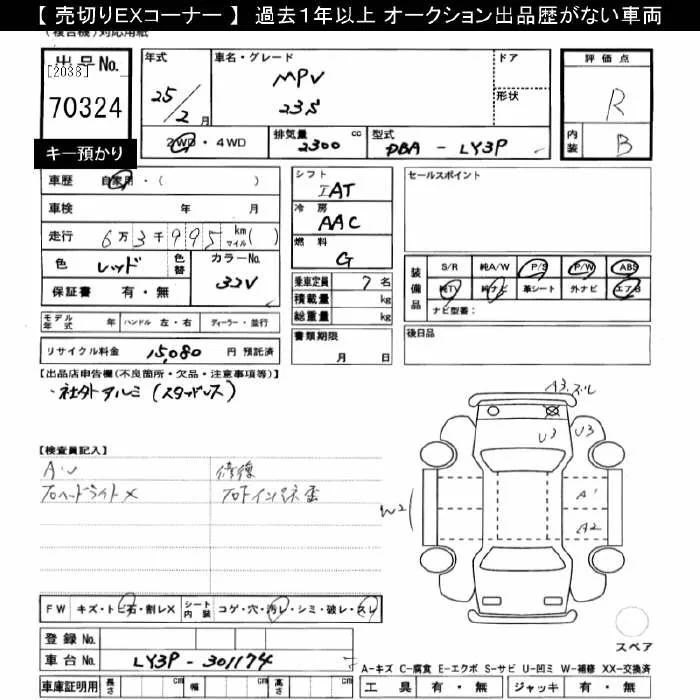 【 売切りEXコーナー 】 過去1年以上 オークション出品歴がない車両
(複合機)対応用紙
出品No. [2038] 70324
キー預かり
年式 25/2月
車名・グレード MPV 23S
ドア
形状
評価点 R
内装 B
2WD・4WD
排気量 2300 cc
型式 DBA - LY3P
車歴 自家用・( )
車検 年 月
走行 6万3千995 km マイル( )
色 レッド 色替 カラーNo. 32V
保証書 有・無
シフト IAT
冷房 AAC
燃料 G
乗車定員 7名
積載量 kg
総重量 kg
書類期限 月 日
セールスポイント
装備品 S/R 純A/W P/S P/W ABS
純TV 純ナビ 革シート 外ナビ エアB
ナビ型番:
後日品
モデル年式 年 ハンドル 左・右 ディーラー・並行
リサイクル料金 15,080 円 預託済
【出品店申告欄(不良箇所・欠品・注意事項等)】
・社外アルミ(スタッドレス)
【検査員記入】
AU 修復
ヘッドライトX
A3
U3 U3
W2
A1
A2
FW キズ・トビ石・割レX シート内装 コゲ・穴・汚レ・シミ・破レ・スレ
登録No.
車台No. LY3P-301174
車庫証明用 長さ cm 幅 cm 高さ cm
スペア
A-キズ C-腐食 E-エクボ S-サビ U-凹ミ W-補修 XX-交換済
工具 有・無 ジャッキ 有・無